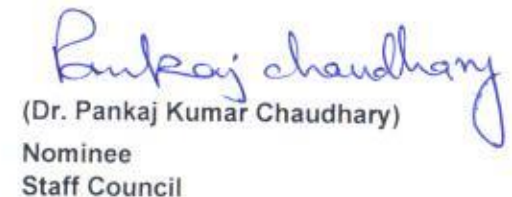 Pankaj chaudhary
(Dr. Pankaj Kumar Chaudhary)
Nominee
Staff Council